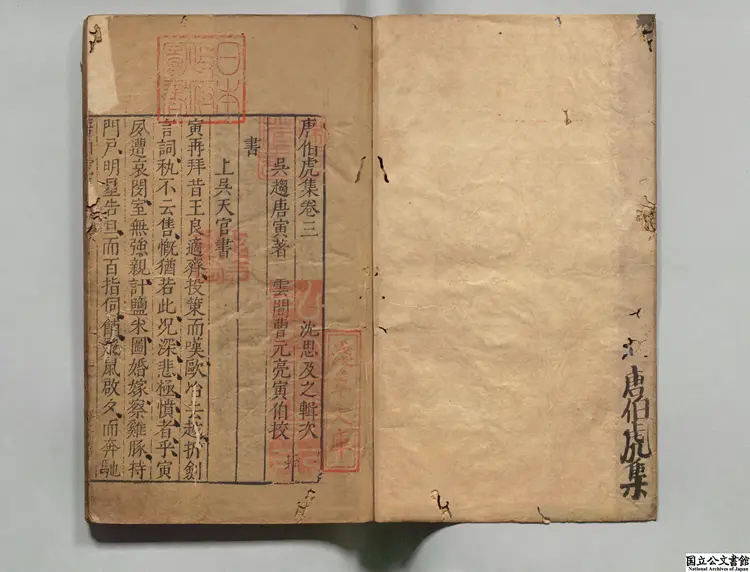 唐伯虎集
日本
政府
圖書
唐伯虎集卷三 沈思及之輯次
吳趨唐寅著 雲閒曹元亮寅伯挍
淺草文庫
書
上吳天官書
寅再拜昔王良適齊投策而嘆歐冶去越折劍
言詞秇不云售慨猶若此况深悲極憤者乎寅
夙遭哀閔室無強親計鹽米圖婚嫁察雞豚持
門戸明星告旦而百指伺餔飛鼠啟夕而奔馳
国立公文書館
National Archives of Japan